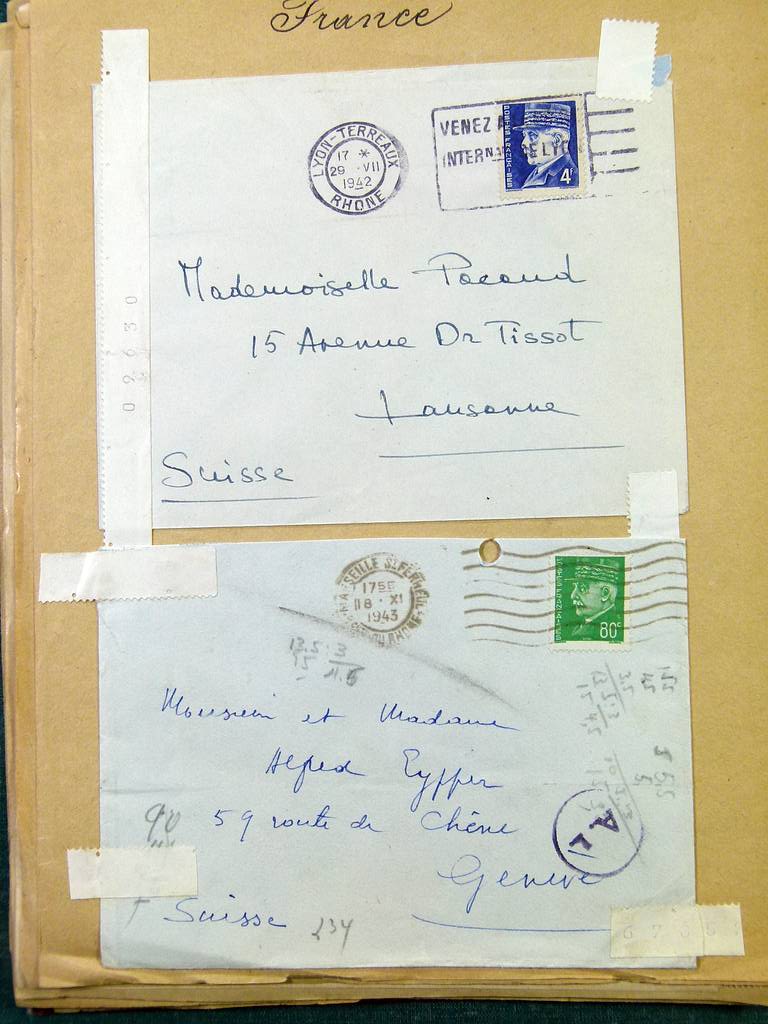 France
LYON-TERREAUX
17 *
29 ·VII
1942
RHONE
VENEZ A
INTERN
POSTES FRANÇAISES
4F
Mademoiselle Pacoud
15 Avenue Dr Tissot
Lausanne
Suisse
02630
MARSEILLE ST FERREOL
1755
18 · XI
1943
DU RHONE
80c
13.5 3
15 4.5
Monsieur et Madame
Alfred Eyffer
59 route de Chêne
Genève
Suisse
234
90
A.